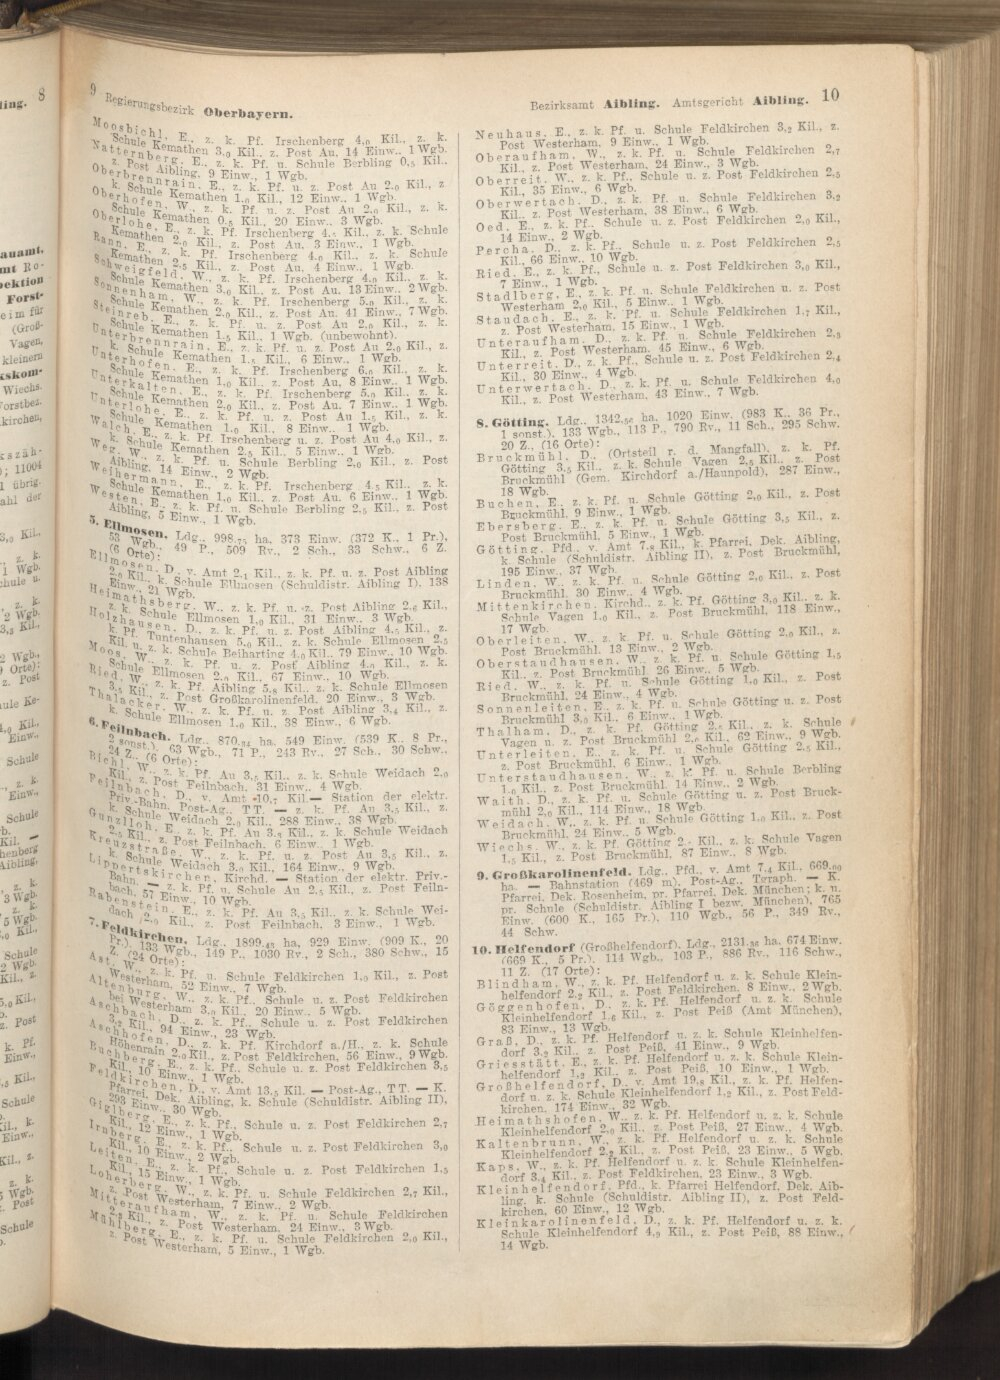 9 Regierungsbezirk Oberbayern.
Bezirksamt Aibling. Amtsgericht Aibling. 10
Moosbichl, E., z. k. Pf. Irschenberg 4,0 Kil., z. k.
Schule Kemathen 3,0 Kil., z. Post Au, 14 Einw., 1 Wgb.
Natternberg, E., z. k. Pf. u. Schule Berbling 0,5 Kil.,
z. Post Aibling, 9 Einw., 1 Wgb.
Oberbrennrain, E., z. k. Pf. u. z. Post Au 2,0 Kil., z.
k. Schule Kemathen 1,0 Kil., 12 Einw., 1 Wgb.
Oberhofen, W., z. k. Pf. u. z. Post Au 2,0 Kil., z. k.
Schule Kemathen 0,5 Kil., 20 Einw., 3 Wgb.
Oberlohe, E., z. k. Pf. Irschenberg 4,5 Kil., z. k. Schule
Kemathen 2,0 Kil., z. Post Au, 3 Einw., 1 Wgb.
Rann, E., z. k. Pf. Irschenberg 4,0 Kil., z. k. Schule
Kemathen 2,5 Kil., z. Post Au, 4 Einw., 1 Wgb.
Schweigfeld, W., z. k. Pf. Irschenberg 4,0 Kil., z. k.
Schule Kemathen 3,0 Kil., z. Post Au, 13 Einw., 2 Wgb.
Sonnenham, W., z. k. Pf. Irschenberg 5,0 Kil., z. k.
Schule Kemathen 2,0 Kil., z. Post Au, 41 Einw., 7 Wgb.
Steinreb, E., z. k. Pf. u. z. Post Au 2,0 Kil., z. k.
Schule Kemathen 1,5 Kil., 1 Wgb. (unbewohnt).
Unterbrennrain, E., z. k. Pf. u. z. Post Au 2,0 Kil., z.
k. Schule Kemathen 1, Kil., 6 Einw., 1 Wgb.
Unterhofen, E., z. k. Pf. Irschenberg 6,0 Kil., z. k.
Schule Kemathen 1,0 Kil., z. Post Au, 8 Einw., 1 Wgb.
Unterkalten, E., z. k. Pf. Irschenberg 5,0 Kil., z. k.
Schule Kemathen 2,0 Kil., z. Post Au, 7 Einw., 1 Wgb.
Unterlohe, E., z. k. Pf. u. z. Post Au 1,5 Kil., z. k.
Schule Kemathen 1,0 Kil., 8 Einw., 1 Wgb.
Walch, E., z. k. Pf. Irschenberg u. z. Post Au 4,0 Kil., z.
k. Schule Kemathen 2,5 Kil., 5 Einw., 1 Wgb.
Weg, W., z. k. Pf. u. Schule Berbling 2,0 Kil., z. Post
Aibling, 14 Einw., 2 Wgb.
Weihermann, E., z. k. Pf. Irschenberg 4,5 Kil., z. k.
Schule Kemathen 1,0 Kil., z. Post Au, 6 Einw., 1 Wgb.
Westen, E., z. k. Pf. u. Schule Berbling 2,5 Kil., z. Post
Aibling, 5 Einw., 1 Wgb.
5. Ellmosen, Ldg., 998,75 ha, 373 Einw. (372 K., 1 Pr.),
53 Wgb., 49 P., 509 Rv., 2 Sch., 33 Schw., 6 Z.
(6 Orte):
Ellmosen, D., v. Amt 2,1 Kil., z. k. Pf. u. z. Post Aibling
2,0 Kil., k. Schule Ellmosen (Schuldistr. Aibling I), 138
Einw., 21 Wgb.
Heimathsberg, W., z. k. Pf. u. z. Post Aibling 2,6 Kil.,
z. k. Schule Ellmosen 1,0 Kil., 31 Einw., 3 Wgb.
Holzhausen, D., z. k. Pf. u. z. Post Aibling 4,5 Kil., z.
k. Pf. Tuntenhausen 5,0 Kil., z. k. Schule Ellmosen 2,5
Kil. u. z. k. Schule Beiharting 4,0 Kil., 79 Einw., 10 Wgb.
Moos, W., z. k. Pf. u. z. Post Aibling 4,0 Kil., z. k.
Schule Ellmosen 2,0 Kil., 67 Einw., 10 Wgb.
Ried, W., z. k. Pf. Aibling 5,8 Kil., z. k. Schule Ellmosen
3,5 Kil., z. Post Großkarolinenfeld, 20 Einw., 3 Wgb.
Thalacker, W., z. k. Pf. u. z. Post Aibling 3,4 Kil., z.
k. Schule Ellmosen 1,0 Kil., 38 Einw., 6 Wgb.
6. Feilnbach, Ldg., 870,34 ha, 549 Einw. (539 K., 8 Pr.,
2 sonst.), 63 Wgb., 71 P., 243 Rv., 27 Sch., 30 Schw.,
24 Z., (6 Orte):
Bichl, W., z. k. Pf. Au 3,5 Kil., z. k. Schule Weidach 2,0
Kil., z. Post Feilnbach, 31 Einw., 4 Wgb.
Feilnbach, D., v. Amt 10,7 Kil. — Station der elektr.
Priv.-Bahn. Post-Ag., TT. — z. k. Pf. Au 3,5 Kil., z.
k. Schule Weidach 2,0 Kil., 288 Einw., 38 Wgb.
Gunzlloh, E., z. k. Pf. Au 3,5 Kil., z. k. Schule Weidach
2,5 Kil., z. Post Feilnbach, 6 Einw., 1 Wgb.
Kreuzstraße, W., z. k. Pf. u. z. Post Au 3,5 Kil., z.
k. Schule Weidach 3,0 Kil., 164 Einw., 9 Wgb.
Lippertskirchen, Kirchd. — Station der elektr. Priv.-
Bahn. — z. k. Pf. u. Schule Au 2,5 Kil., z. Post Feiln-
bach, 57 Einw., 10 Wgb.
Rabenstein, E., z. k. Pf. Au 3,5 Kil., z. k. Schule Wei-
dach 2,0 Kil., z. Post Feilnbach, 3 Einw., 1 Wgb.
7. Feldkirchen, Ldg., 1899,43 ha, 929 Einw. (909 K., 20
Pr.), 133 Wgb., 149 P., 1030 Rv., 2 Sch., 380 Schw., 15
Z. (24 Orte):
Ast, W., z. k. Pf. u. Schule Feldkirchen 1,0 Kil., z. Post
Westerham, 52 Einw., 7 Wgb.
Altenburg, W., z. k. Pf., Schule u. z. Post Feldkirchen
bei Westerham 3,0 Kil., 20 Einw., 5 Wgb.
Aschbach, D., z. k. Pf., Schule u. z. Post Feldkirchen
3,2 Kil., 94 Einw., 23 Wgb.
Aschhofen, D., z. k. Pf. Kirchdorf a./H., z. k. Schule
Höhenrain 2,0 Kil., z. Post Feldkirchen, 56 Einw., 9 Wgb.
Buchberg, E., z. k. Pf., Schule u. z. Post Feldkirchen 3,5
Kil., 10 Einw., 1 Wgb.
Feldkirchen, D., v. Amt 13,5 Kil. — Post-Ag., TT. — K.
Pfarrei, Dek. Aibling, k. Schule (Schuldistr. Aibling II),
293 Einw., 30 Wgb.
Giglberg, E., z. k. Pf., Schule u. z. Post Feldkirchen 2,7
Kil., 12 Einw., 1 Wgb.
Irnberg, E., z. k. Pf., Schule u. z. Post Feldkirchen 3,0
Kil., 10 Einw., 2 Wgb.
Leiten, E., z. k. Pf., Schule u. z. Post Feldkirchen 1,5
Kil., 15 Einw., 1 Wgb.
Loherberg, W., z. k. Pf. u. Schule Feldkirchen 2,7 Kil.,
z. Post Westerham, 7 Einw., 2 Wgb.
Mitteraufham, W., z. k. Pf. u. Schule Feldkirchen
2,8 Kil., z. Post Westerham, 24 Einw., 3 Wgb.
Mühlberg, E., z. k. Pf. u. Schule Feldkirchen 2,0 Kil.,
z. Post Westerham, 5 Einw., 1 Wgb.
Neuhaus, E., z. k. Pf. u. Schule Feldkirchen 3,2 Kil., z.
Post Westerham, 9 Einw., 1 Wgb.
Oberaufham, W., z. k. Pf. u. Schule Feldkirchen 2,7
Kil., z. Post Westerham, 24 Einw., 3 Wgb.
Oberreit, W., z. k. Pf., Schule u. z. Post Feldkirchen 2,5
Kil., 35 Einw., 6 Wgb.
Oberwertach, D., z. k. Pf. u. Schule Feldkirchen 3,2
Kil., z. Post Westerham, 38 Einw., 6 Wgb.
Oed, E., z. k. Pf., Schule u. z. Post Feldkirchen 2,0 Kil.,
14 Einw., 2 Wgb.
Percha, D., z. k. Pf., Schule u. z. Post Feldkirchen 2,5
Kil., 66 Einw., 10 Wgb.
Ried, E., z. k. Pf., Schule u. z. Post Feldkirchen 3,0 Kil.,
7 Einw., 1 Wgb.
Stadlberg, E., z. k. Pf. u. Schule Feldkirchen u. z. Post
Westerham 2,0 Kil., 5 Einw., 1 Wgb.
Staudach, E., z. k. Pf. u. Schule Feldkirchen 1,7 Kil.,
z. Post Westerham, 15 Einw., 1 Wgb.
Unteraufham, D., z. k. Pf. u. Schule Feldkirchen 2,3
Kil., z. Post Westerham, 45 Einw., 6 Wgb.
Unterreit, D., z. k. Pf., Schule u. z. Post Feldkirchen 2,4
Kil., 30 Einw., 4 Wgb.
Unterwertach, D., z. k. Pf. u. Schule Feldkirchen 4,0
Kil., z. Post Westerham, 43 Einw., 7 Wgb.
8. Götting, Ldg., 1342,56 ha, 1020 Einw. (983 K., 36 Pr.,
1 sonst.), 133 Wgb., 113 P., 790 Rv., 11 Sch., 295 Schw.
20 Z., (16 Orte):
Bruckmühl, D., (Ortsteil r. d. Mangfall), z. k. Pf.
Götting 3,5 Kil., z. k. Schule Vagen 2,5 Kil., z. Post
Bruckmühl (Gem. Kirchdorf a./Haunpold), 287 Einw.,
18 Wgb.
Buchen, E., z. k. Pf. u. Schule Götting 2,0 Kil., z. Post
Bruckmühl, 9 Einw., 1 Wgb.
Ebersberg, E., z. k. Pf. u. Schule Götting 3,5 Kil., z.
Post Bruckmühl, 5 Einw., 1 Wgb.
Götting, Pfd., v. Amt 7,8 Kil., k. Pfarrei, Dek. Aibling,
k. Schule (Schuldistr. Aibling II), z. Post Bruckmühl,
195 Einw., 37 Wgb.
Linden, W., z. k. Pf. u. Schule Götting 2,0 Kil., z. Post
Bruckmühl, 30 Einw., 4 Wgb.
Mittenkirchen, Kirchd., z. k. Pf. Götting 3,0 Kil., z. k.
Schule Vagen 1,0 Kil., z. Post Bruckmühl, 118 Einw.,
17 Wgb.
Oberleiten, W., z. k. Pf. u. Schule Götting 2,0 Kil., z.
Post Bruckmühl, 13 Einw., 2 Wgb.
Oberstaudhausen, W., z. k. Pf. u. Schule Götting 1,5
Kil., z. Post Bruckmühl, 26 Einw., 5 Wgb.
Ried, W., z. k. Pf. u. Schule Götting 1,0 Kil., z. Post
Bruckmühl, 24 Einw., 4 Wgb.
Sonnenleiten, E., z. k. Pf. u. Schule Götting u. z. Post
Bruckmühl 3,0 Kil., 6 Einw., 1 Wgb.
Thalham, D., z. k. Pf. Götting 2,5 Kil., z. k. Schule
Vagen u. z. Post Bruckmühl 2,0 Kil., 62 Einw., 9 Wgb.
Unterleiten, E., z. k. Pf. u. Schule Götting 2,5 Kil.,
z. Post Bruckmühl, 6 Einw., 1 Wgb.
Unterstaudhausen, W., z. k. Pf. u. Schule Berbling
1,0 Kil., z. Post Bruckmühl, 14 Einw., 2 Wgb.
Waith, D., z. k. Pf. u. Schule Götting u. z. Post Bruck-
mühl 2,0 Kil., 114 Einw., 18 Wgb.
Weidach, W., z. k. Pf. u. Schule Götting 1,0 Kil., z. Post
Bruckmühl, 24 Einw., 5 Wgb.
Wiechs, W., z. k. Pf. Götting 2, Kil., z. k. Schule Vagen
1,5 Kil., z. Post Bruckmühl, 87 Einw., 8 Wgb.
9. Großkarolinenfeld, Ldg., Pfd., v. Amt 7,4 Kil., 669,00
ha. — Bahnstation (469 m), Post-Ag., Tgraph. — K.
Pfarrei, Dek. Rosenheim, pr. Pfarrei, Dek. München; k. u.
pr. Schule (Schuldistr. Aibling I bezw. München), 765
Einw. (600 K., 165 Pr.), 110 Wgb., 56 P., 349 Rv.,
44 Schw.
10. Helfendorf (Großhelfendorf), Ldg., 2131,36 ha, 674 Einw.
(669 K., 5 Pr.), 114 Wgb., 103 P., 886 Rv., 116 Schw.,
11 Z. (17 Orte):
Blindham, W., z. k. Pf. Helfendorf u. z. k. Schule Klein-
helfendorf 2,2 Kil., z. Post Feldkirchen, 8 Einw., 2 Wgb.
Göggenhofen, D., z. k. Pf. Helfendorf u. z. k. Schule
Kleinhelfendorf 1,6 Kil., z. Post Peiß (Amt München),
83 Einw., 13 Wgb.
Graß, D., z. k. Pf. Helfendorf u. z. k. Schule Kleinhelfen-
dorf 3,2 Kil., z. Post Peiß, 41 Einw., 9 Wgb.
Griesstätt, E., z. k. Pf. Helfendorf u. z. k. Schule Klein-
helfendorf 1,2 Kil., z. Post Peiß, 10 Einw., 1 Wgb.
Großhelfendorf, D., v. Amt 19,8 Kil., z. k. Pf. Helfen-
dorf u. z. k. Schule Kleinhelfendorf 1,2 Kil., z. Post Feld-
kirchen, 174 Einw., 32 Wgb.
Heimathshofen, W., z. k. Pf. Helfendorf u. z. k. Schule
Kleinhelfendorf 2,0 Kil., z. Post Peiß, 27 Einw., 4 Wgb.
Kaltenbrunn, W., z. k. Pf. Helfendorf u. z. k. Schule
Kleinhelfendorf 2,2 Kil., z. Post Peiß, 23 Einw., 5 Wgb.
Kaps, W., z. k. Pf. Helfendorf u. z. k. Schule Kleinhelfen-
dorf 3,4 Kil., z. Post Feldkirchen, 23 Einw., 3 Wgb.
Kleinhelfendorf, Pfd., k. Pfarrei Helfendorf, Dek. Aib-
ling, k. Schule (Schuldistr. Aibling II), z. Post Feld-
kirchen, 60 Einw., 12 Wgb.
Kleinkarolinenfeld, D., z. k. Pf. Helfendorf u. z. k.
Schule Kleinhelfendorf 4,0 Kil., z. Post Peiß, 88 Einw.,
14 Wgb.